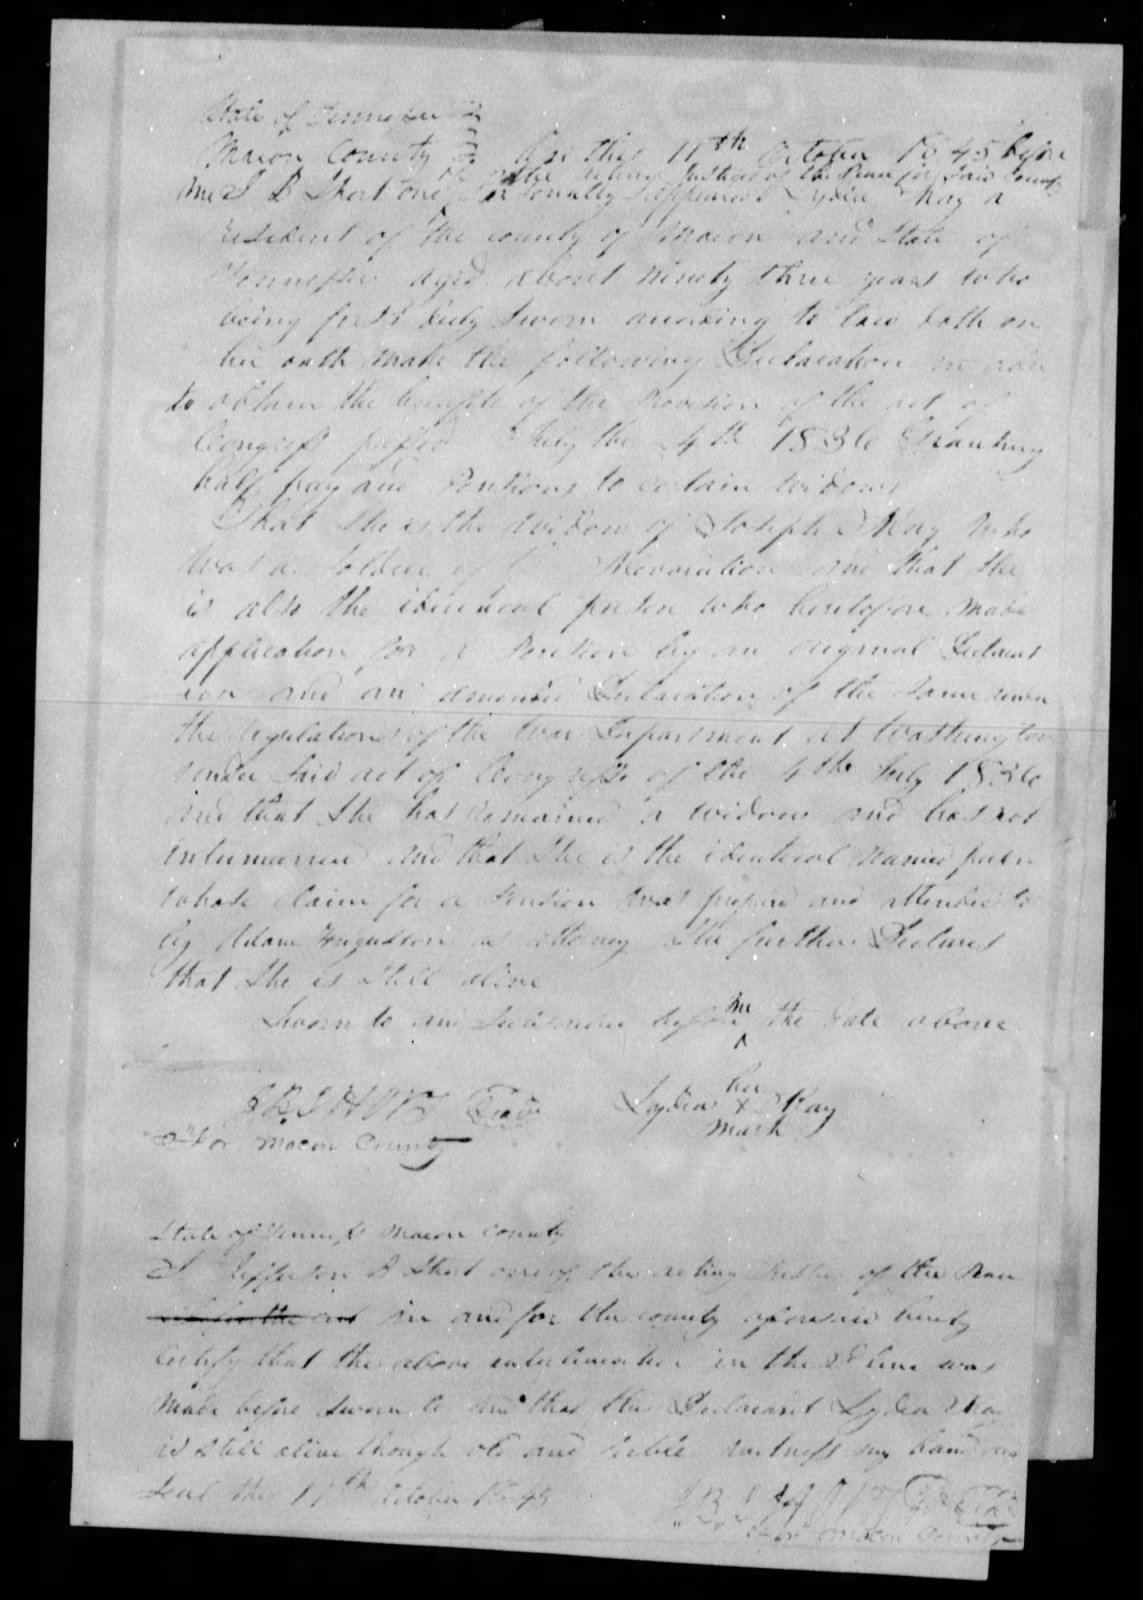 State of Tennessee
Macon County On this 11th October 1845 before
of the acting Justices of the Peace for Said County
me J B Short one Personally appeared Lydia Ray a
resident of the county of Macon and State of
Tennessee aged about ninety three years who
being first duly Sworn according to law doth on
her oath make the following Declaration in order
to obtain the benefits of the Provision of the act of
Congress passed July the 4th 1836 Granting
half pay and Pensions to certain widows
That She is the widow of Joseph Ray who
was a Soldier of Revolution and that She
is also the identical person who heretofore made
application for a Pension by an original Declarat
ion and an amended Declaration of the Same under
the regulations of the War Department at Washington
under Said act of Congress of the 4th July 1836
and that She has remained a widow and has not
intermarried and that She is the identical named person
whose claim for a Pension was prepared and attended to
by Adam Fergusson as attorney She further Declares
that She is Still alive
Sworn to and Subscribed before me the date above
her
J B SHORT Seal Lydia X Ray
mark
for Macon County
State of Tenness Macon County
I Jefferson B Short one of the acting Justice of the Peace
in and for the county aforesaid hereby
Certify that the above interlineation in the 2d line was
made before Sworn to and that the Declarant Lydia Ray
is Still alive though old and feeble witness my hand and
Seal the 11th October 1845
J B SHORT Seal
for Macon County